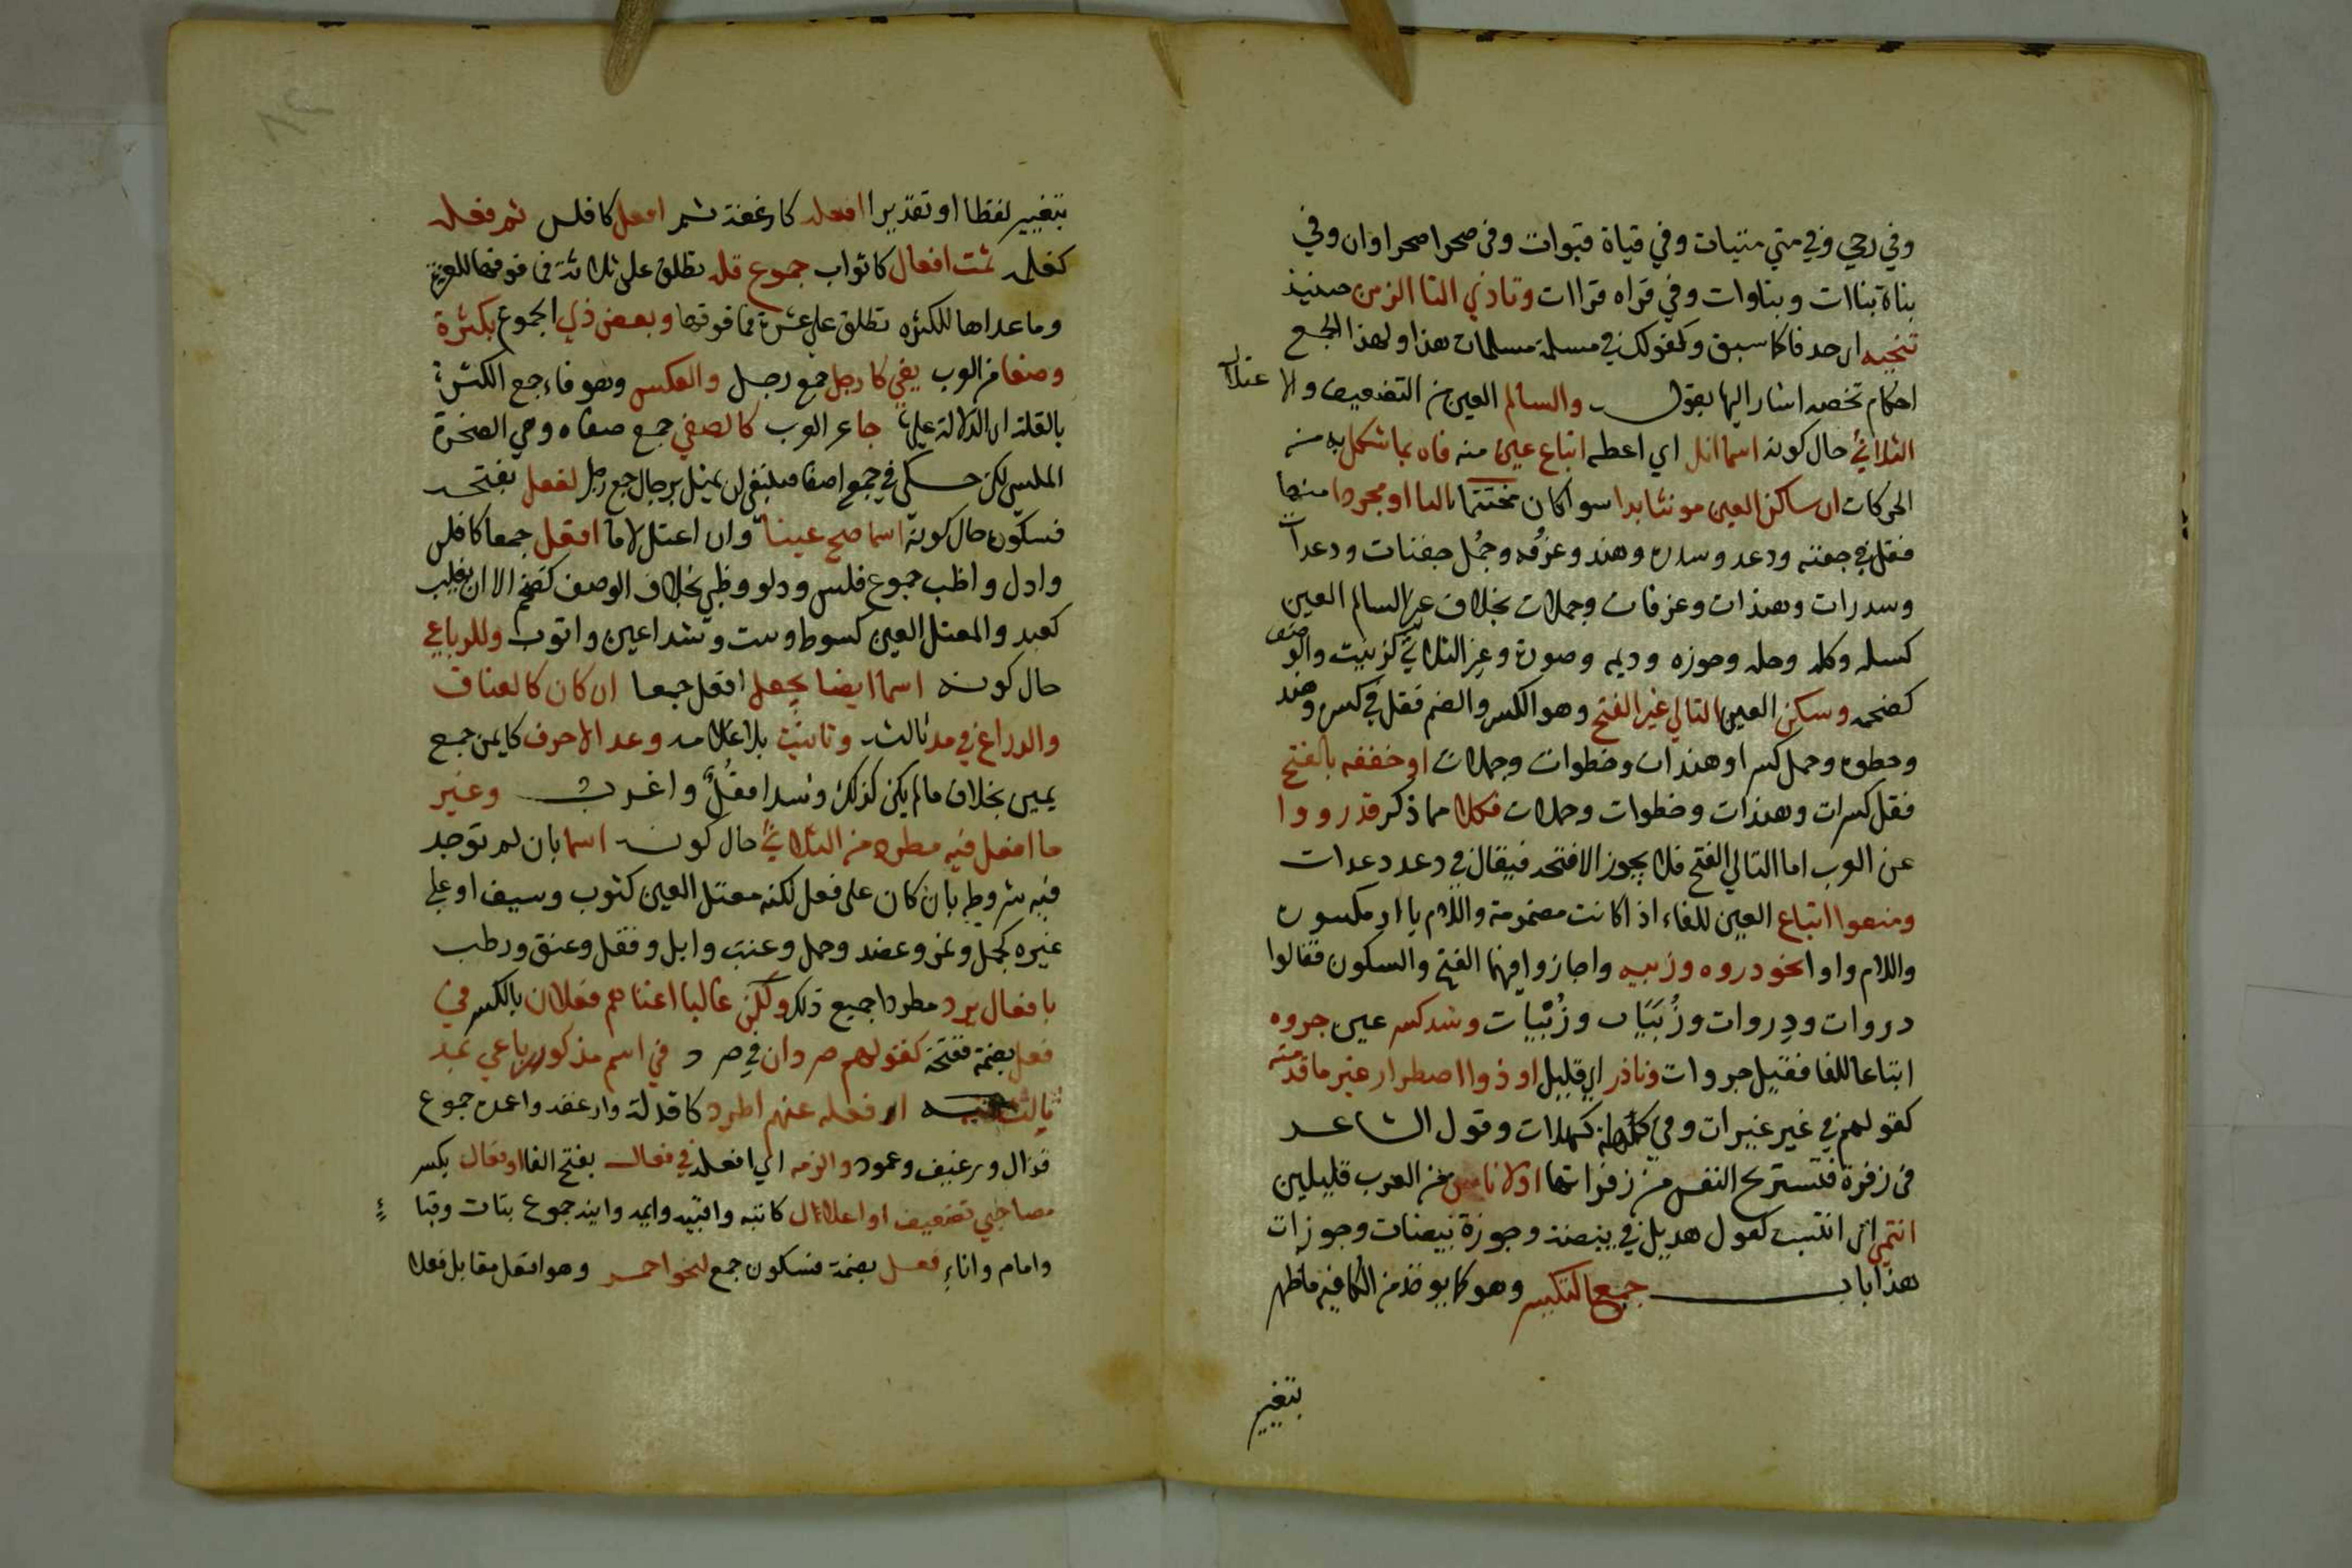 وفي رحي وفي متي متيات وفي قناة قنوات وفي صحرا صحراوان وفي
بناة بناات وبناوات وفي قراه قراات وتاذي التا الزمن حينيذ
تنحيه اي حذفا كما سبق وكقولك في مسلمة مسلمات هذا ولهذا الجمع
احكام تخصه اشار اليها بقوله والسالم العين من التضعيف والاعتلال
الثلاثي حال كونه اسما انل اي اعطه اتباع عين منه فاه بما شكل به من
الحركات ان ساكن العين مونثا بدا سوا كان مختتما بالتا او مجردا منها
فقل في جفنه ودعد وسدره وهند وغرفه وجُمل جفنات ودعدات
وسدرات وهندات وغرفات وجملات بخلاف غير السالم العين
كسله وكله وحله وجوزه وديمه وصورة وغير الثلاثي كزينب والوصف
كضخمه وسكن العين التالي غير الفتح وهو الكسر والضم فقل في كسره وهند
وخطوه وجمل كسرات وهندات وخطوات وجملات او خففه بالفتح
فقل كسرات وهندات وخطوات وجملات فكلا مما ذكر قد رووا
عن العرب اما التالي الفتح فلا يجوز الا فتحه فيقال في دعد دعدات
ومنعوا اتباع العين للفاء اذا كانت مضمومة واللام ياا او مكسوره
واللام واوا نحو ذروه وزبيه واجازوا فيهما الفتح والسكون فقالوا
ذروات وذِروات وزُبَيَات وزُبْيات وشذ كسر عين جروه
اتباعا للفا فقيل جروات ونادر اي قليل او ذوا اضطرار غير ما قدمته
كقولهم في غير عيرات وفي كهلة كهلات وقول الشاعر
فى زفرة فتستريح النفس من زفراتها اولاناس من العرب قليلين
انتمي اي انتسب كقول هذيل في بيضة وجوزة بيضات وجوزات
هذا باب جمع التكسير وهو كما يوخذ من الكافيه ماظهر
بتغيير
بتغيير لفظا او تقديرا افعله كارغفة ثم افعل كافلس ثم فعله
كغلمه ثمت افعال كاثواب جموع قله تطلق على ثلاثة فما فوقها للعشرة
وما عداها للكثره تطلق على عشرة فما فوقها وبعض ذي الجموع بكثرة
وضعا من العرب يفي كارجل جمع رجل والعكس وهو فاء جمع الكثرة
بالقلة اي الدلالة عليها جا عن العرب كالصفي جمع صفاه وهي الصخرة
الملس لكن حكي في جمع اصفا فينبغي ان يمثل برجال جمع رجل لفعل بفتحه
فسكون حال كونه اسما صح عينا وان اعتل لاما افعل جمعا كافلس
وادل واظب جموع فلس ودلو وظبي بخلاف الوصف كضخم الا ان يغلب
كعبد والمعتل العين كسوط وبيت وشذ اعين واثوب وللرباعي
حال كونه اسما ايضا يجعل افعل جمعا ان كان كالعناق
والذراع في مد ثالث وتانيث بلا علامه وعد الاحرف كايمن جمع
يمين بخلاف مالم يكن كذلك وشذ اقفُلٌ واغرب وغير
ما افعل فيه مطرد من الثلاثي حال كونه اسما بان لم توجد
فيه شروطه بان كان على فعل لكنه معتل العين كثوب وسيف او على
غيره كجمل ونمر وعضد وحمل وعنب وابل وقفل وعنق ورطب
بافعال يرد مطردا جميع ذلك ولكن غالبا اغناهم فعلان بالكسر في
فعل بضمة ففتحة كقولهم صردان في صرد في اسم مذكور رباعي بمد
ثالث افعله عنهم اطرد كاقذلة وارغفه واعمدة جموع
قذال ورغيف وعمود والزمه اي افعله في فعال بفتح الفا او فعال بكسر
مصاحبي تضعيف او اعلال كابته واقبيه وايمه وانيه جموع بتات وقباء
وامام واناء فعل بضمة فسكون جمع لنحو احمر وهو افعل مقابل فعلا